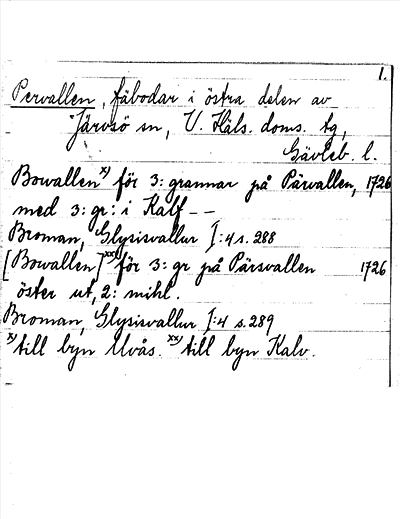 1.
Pervallen, fäbodar i östra delen av
Järvsö sn, V. Häls. doms. tg,
Gävleb. l.
Bowallen x) för 3: grannar på Pärvallen, 1726
med 3: gr: i Kalf - -
Broman, Glysisvallur I:4 s. 288
[Bowallen] xx) för 3: gr på Pärsvallen 1726
öster ut, 2: mihl.
Broman, Glysisvallur I:4 s. 289
x) till byn Uvås. xx) till byn Kalv.